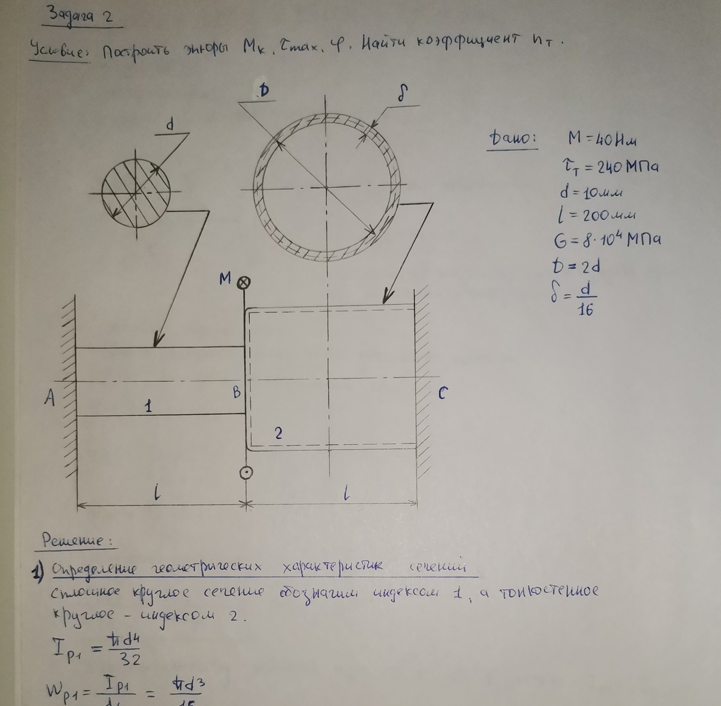 Задача 2
Условие: Построить эпюры Mк, τmax, φ. Найти коэффициент nт.
D
δ
d
Дано: M = 40 Нм
τт = 240 МПа
d = 10 мм
l = 200 мм
G = 8·10⁴ МПа
D = 2d
δ = d/16
M
A
B
C
1
2
l
l
Решение:
1) Определение геометрических характеристик сечений
Сплошное круглое сечение обозначим индексом 1, а тонкостенное
круглое – индексом 2.
Ip1 = πd⁴/32
Wp1 = Ip1/ = πd³/